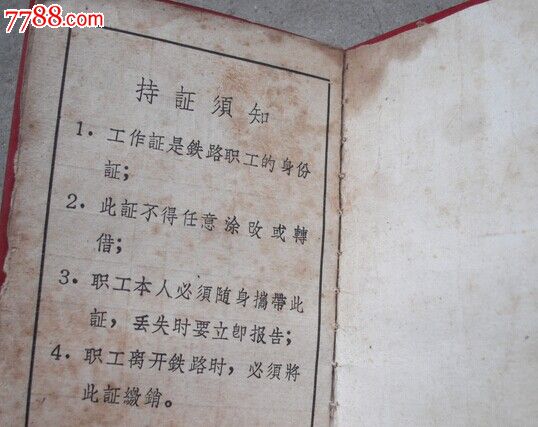 7788.com
中国收藏热线
持証須知
1. 工作証是鉄路职工的身份
証;
2. 此証不得任意涂改或轉
借;
3. 职工本人必須随身攜帶此
証，丢失时要立即报告;
4. 职工离开鉄路时，必須將
此証繳銷。